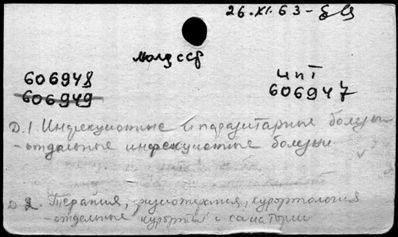 26.XI.63
Молд ССР
606948
606949
чпI
606947
Д.1. Инфекционные и паразитарные болезни
- отдельные инфекционные болезни
Д 2. Терапия, физиотехния, курортология
- отдельные курорты и санатории